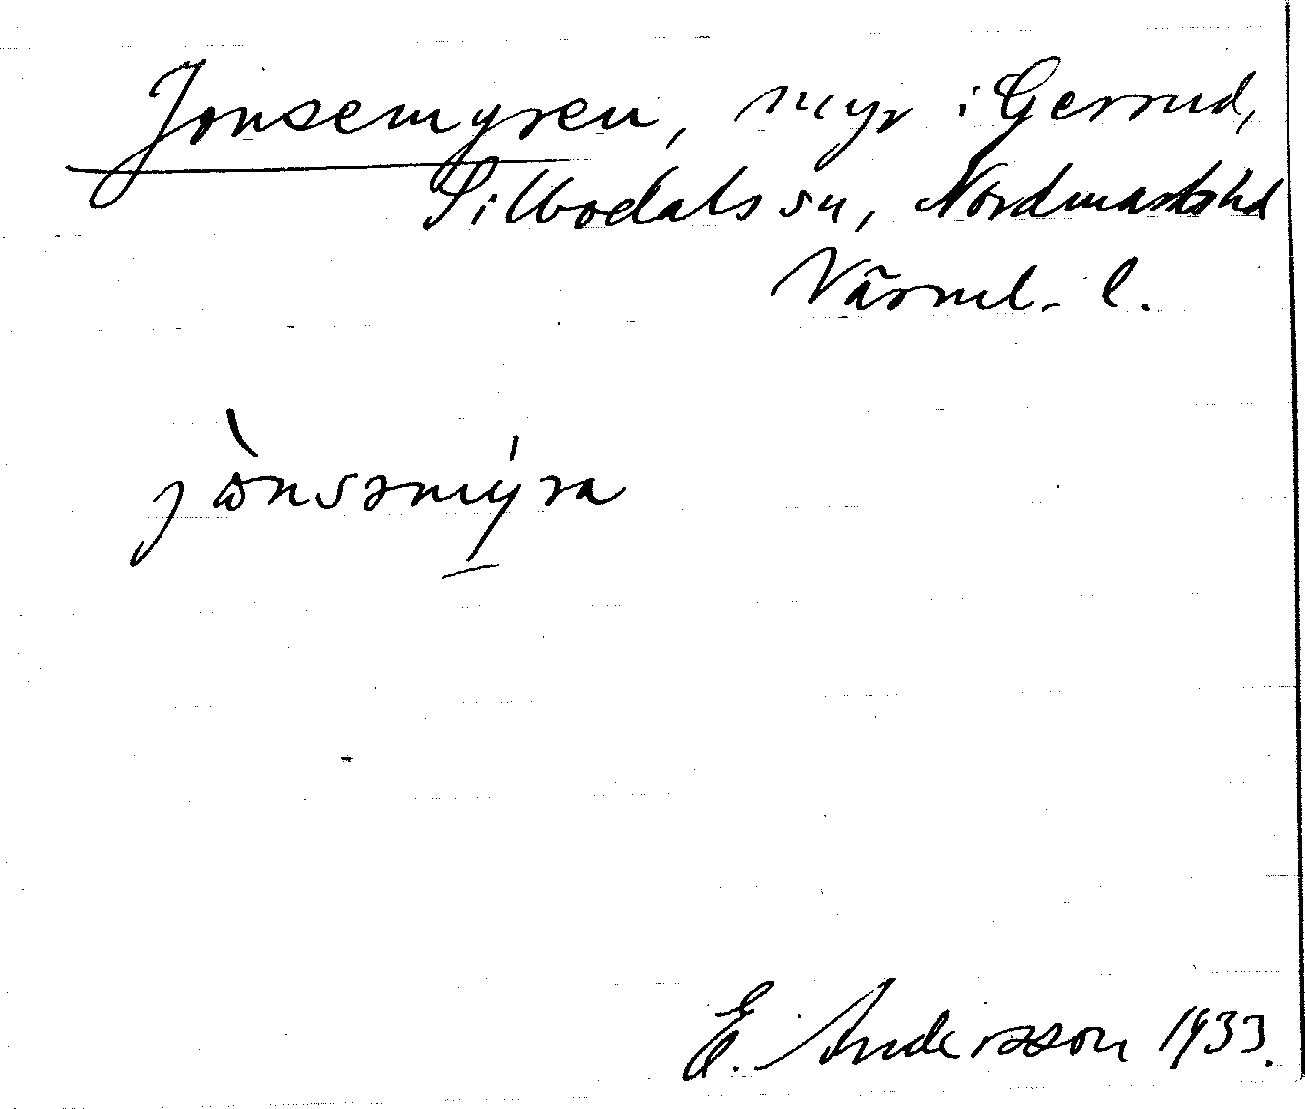 Jonsemyren, myr i Gerrud,
Silbodals sn, Nordmarks hd
Värml. l.
jònsəmý̱ra
E. Andersson 1933.